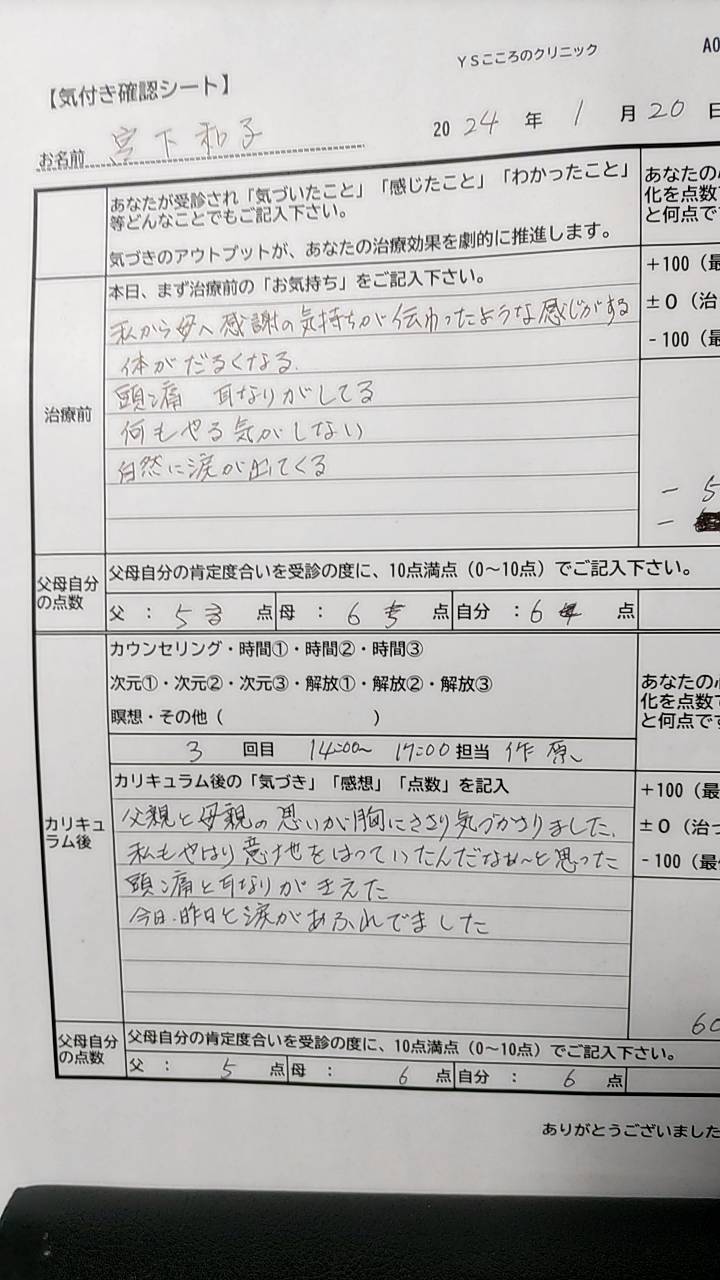 YSこころのクリニック
A0
【気付き確認シート】
お名前 宮下和子 20 24 年 1 月 20 日
あなたが受診され「気づいたこと」「感じたこと」「わかったこと」
等どんなことでもご記入下さい。
気づきのアウトプットが、あなたの治療効果を劇的に推進します。
あなたの
化を点数
と何点で
治療前
本日、まず治療前の「お気持ち」をご記入下さい。
私から母へ感謝の気持ちが伝わったような感じがする
体がだるくなる.
頭痛 耳なりがしてる
何もやる気がしない
自然に涙が出てくる
+100（最
±0（治
-100（最
- 5
-
父母自分
の点数
父母自分の肯定度合いを受診の度に、10点満点（0～10点）でご記入下さい。
父 ： 5 点 母 ： 6 点 自分 ： 6 点
カリキュ
ラム後
カウンセリング・時間①・時間②・時間③
次元①・次元②・次元③・解放①・解放②・解放③
瞑想・その他（ ）
3 回目 14:00～ 17:00 担当 作原
カリキュラム後の「気づき」「感想」「点数」を記入
父親と母親の思いが胸にささり気づかさりました.
私もやはり意地をはっていたんだなぁ～と思った
頭痛と耳なりがきえた
今日.昨日と涙があふれでました
あなたの
化を点数で
と何点です
+100（最
±0（治
-100（最
60
父母自分
の点数
父母自分の肯定度合いを受診の度に、10点満点（0～10点）でご記入下さい。
父 ： 5 点 母 ： 6 点 自分 ： 6 点
ありがとうございました